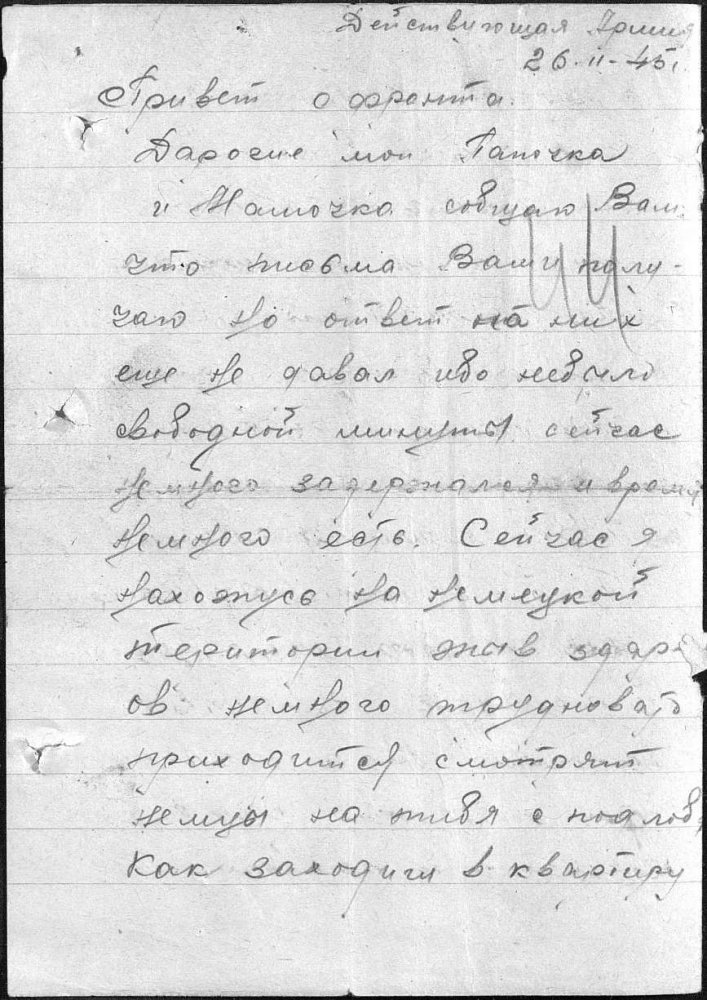 Действующая Армия
26-II-45г.
Привет с фронта.
Дарогие мои Папочка
и Мамочка собщаю Вам
что письма Ваши палу-
чаю но ответ на них
еще не давал ибо небыло
свободной минуты сейчас
немного задержался и время
немного есть. Сейчас я
нахожусь на немецкой
територии жыв здар-
ов немного трудновато
приходится смотрят
немцы на тибя с подлоб
Как заходиш в квартиру